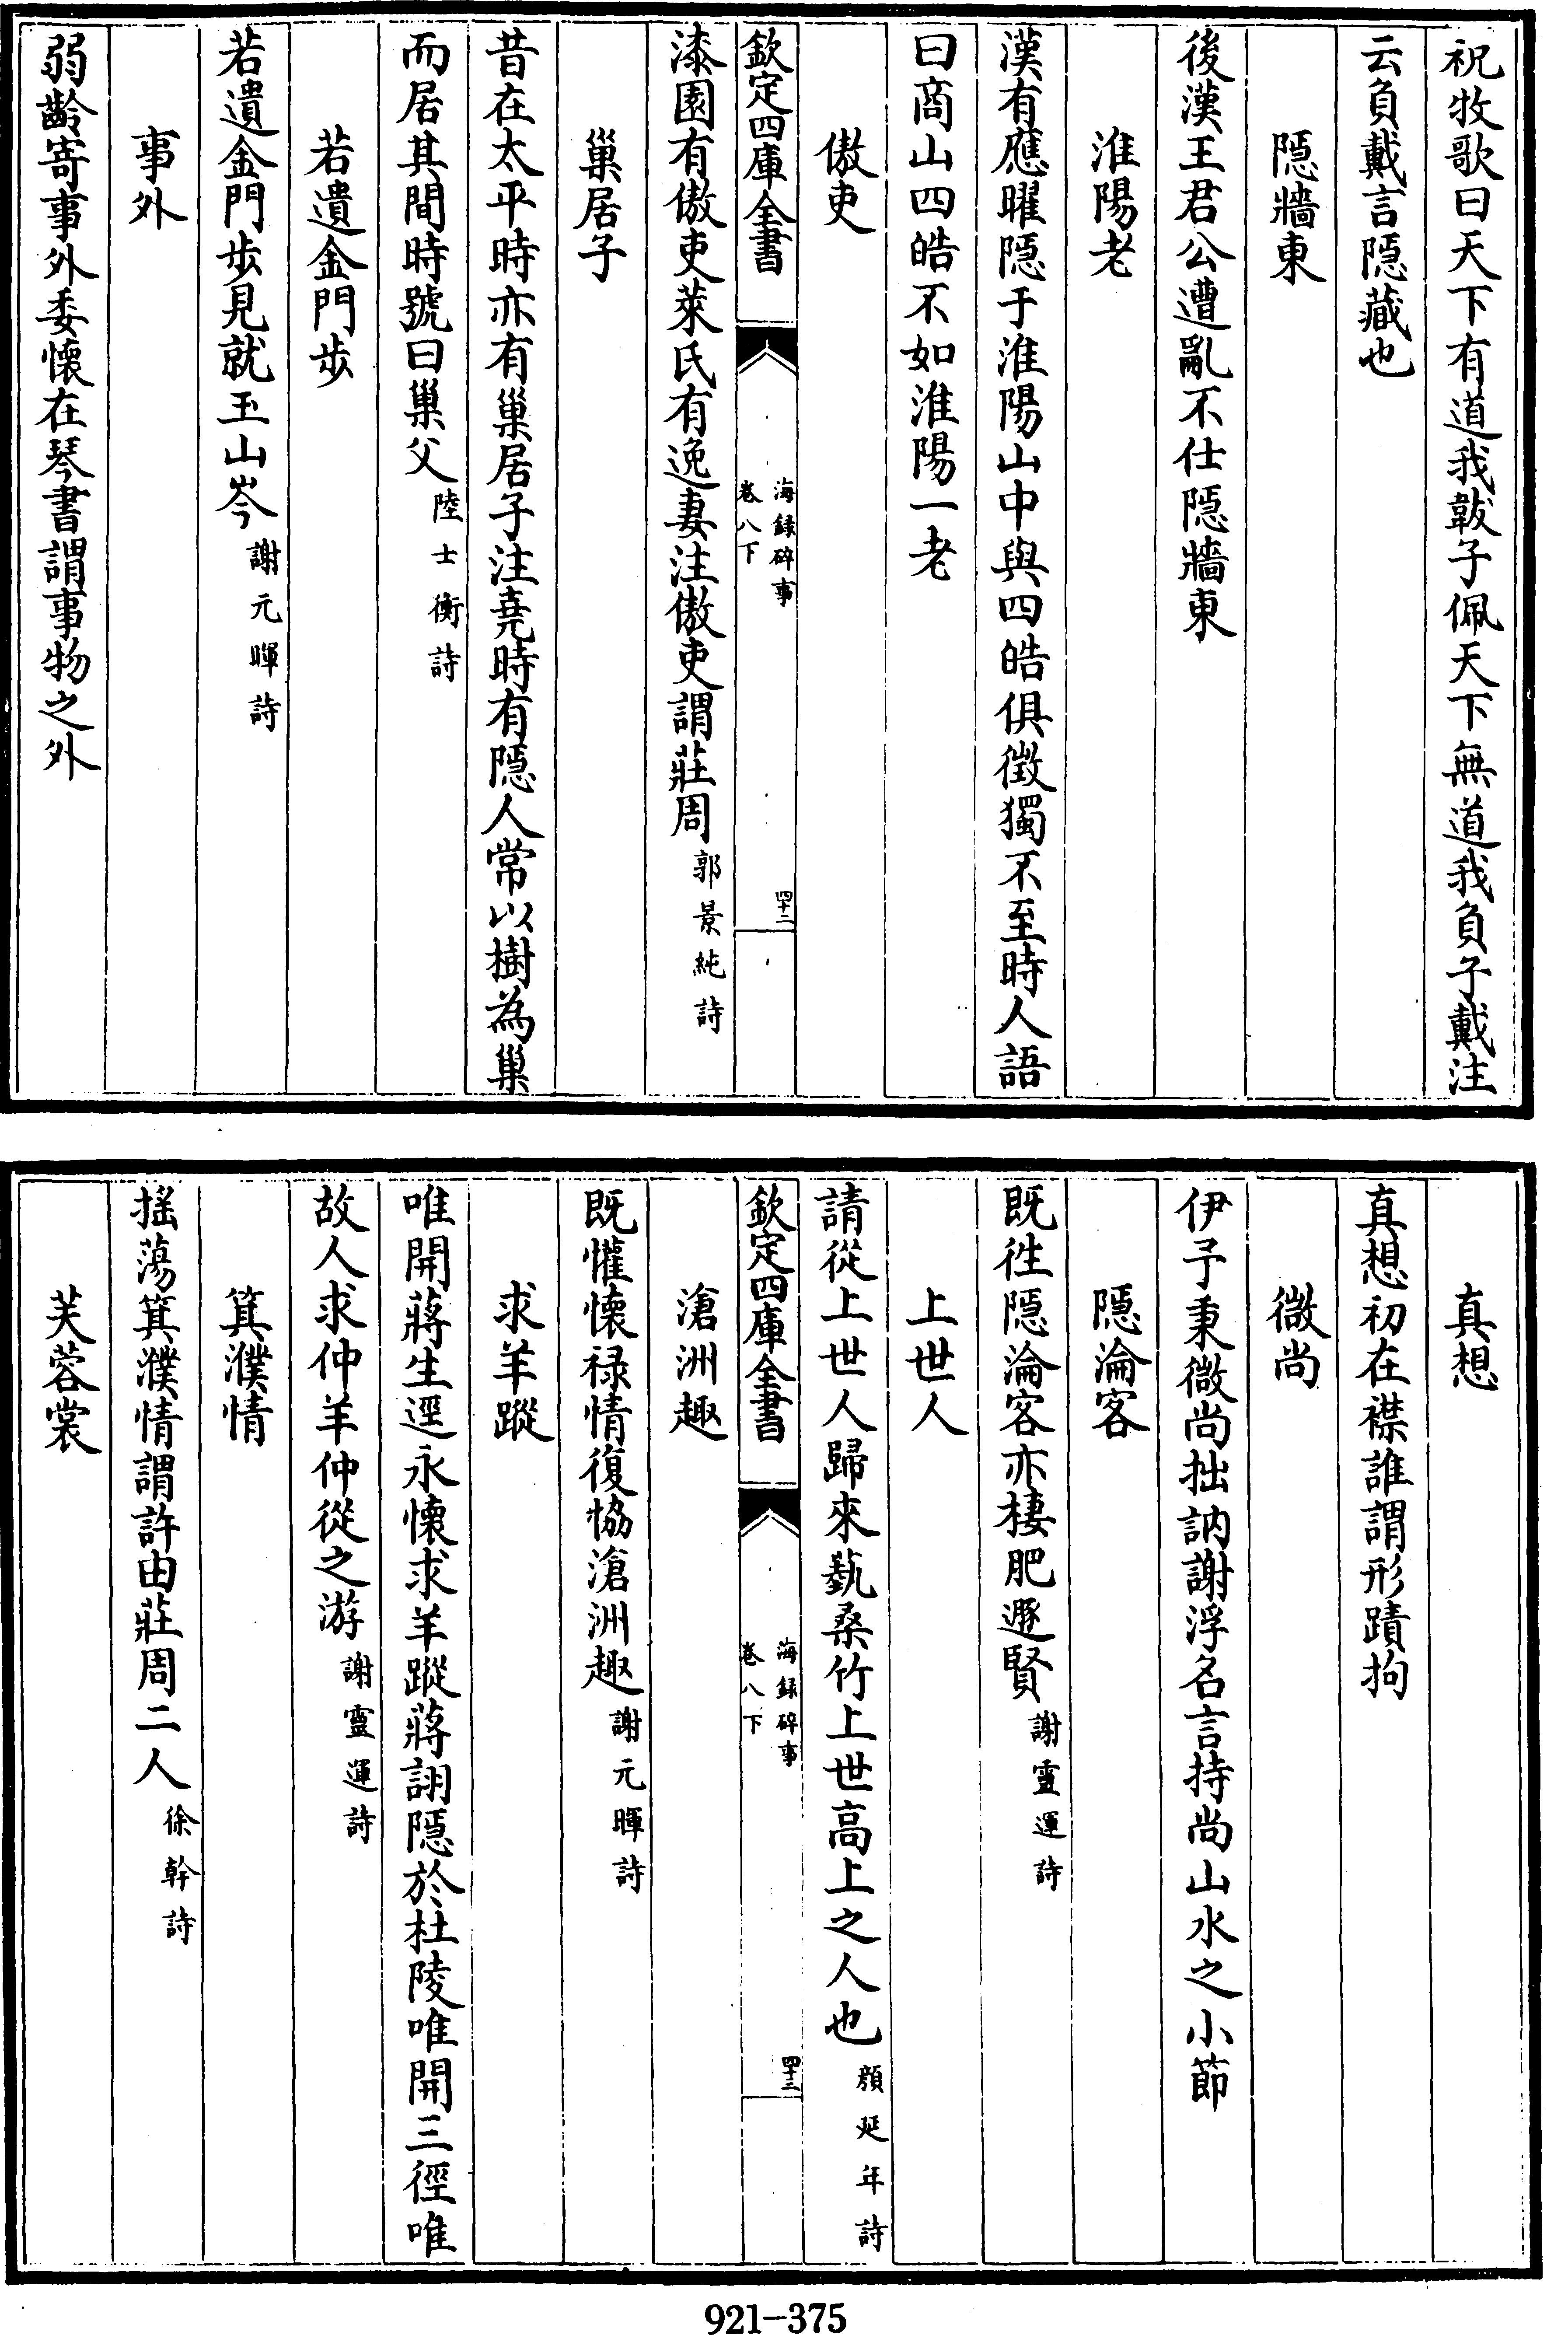 祝牧歌曰天下有道我韍子佩天下無道我負子戴注
云負戴言隱藏也
隱牆東
後漢王君公遭亂不仕隱牆東
淮陽老
漢有應曜隱于淮陽山中與四皓俱徵獨不至時人語
曰商山四皓不如淮陽一老
傲吏
欽定四庫全書
海録碎事
卷八下
四十二
漆園有傲吏萊氏有逸妻注傲吏謂莊周郭景純詩
巢居子
昔在太平時亦有巢居子注堯時有隱人常以樹為巢
而居其間時號曰巢父陸士衡詩
若遺金門步
若遺金門步見就玉山岑謝元暉詩
事外
弱齡寄事外委懷在琴書謂事物之外
真想
真想初在襟誰謂形蹟拘
微尚
伊予秉微尚拙訥謝浮名言持尚山水之小節
隱淪客
既徃隱淪客亦棲肥遯賢謝靈運詩
上世人
請從上世人歸來蓺桑竹上世高上之人也顏延年詩
欽定四庫全書
海録碎事
卷八下
四十三
滄洲趣
既懽懷禄情復恊滄洲趣謝元暉詩
求羊蹤
唯開蔣生逕永懷求羊蹤蔣詡隱於杜陵唯開三徑唯
故人求仲羊仲從之游謝靈運詩
箕濮情
揺蕩箕濮情謂許由莊周二人徐幹詩
芙蓉裳
921-375